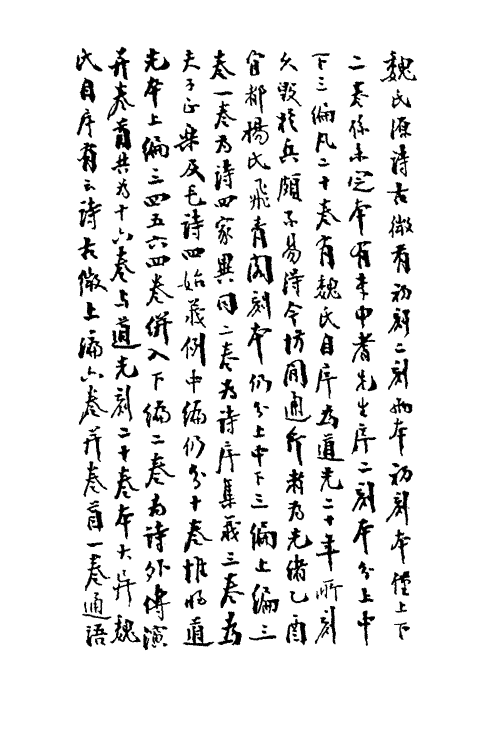 魏氏源詩古微有初刻二刻兩本初刻本僅上下
二卷係未定本有李申耆先生序二刻本分上中
下三編凡二十卷有魏氏自序為道光二十年所刻
久毀於兵頗不易得今坊間通行者為光緒乙酉
宜都楊氏飛青閣刻本仍分上中下三編上編三
卷一卷為詩四家異同二卷為詩序集義三卷為
夫子正樂及毛詩四始義例中編仍分十卷惟將道
光本上編三四五六四卷併入下編二卷為詩外傳演
并卷首共為十六卷与道光刻二十卷本大異魏
氏自序有云詩古微上編六卷并卷首一卷通語